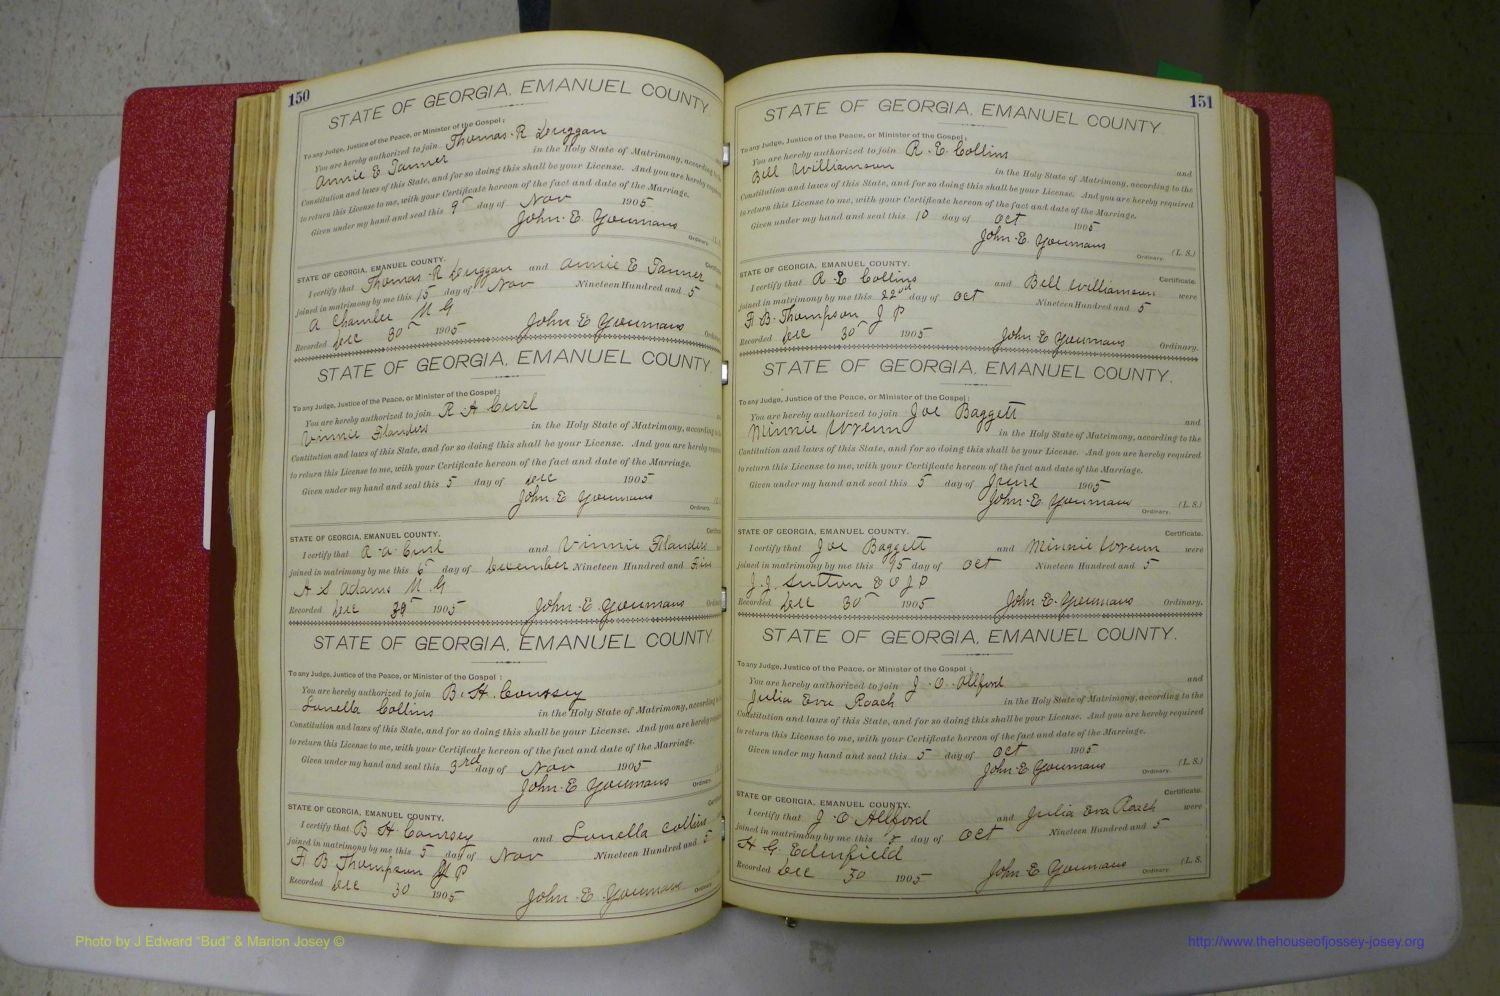 150
STATE OF GEORGIA, EMANUEL COUNTY.
To any Judge, Justice of the Peace, or Minister of the Gospel:
You are hereby authorized to join Thomas R Duggan
Annie E Tanner in the Holy State of Matrimony, according
Constitution and laws of this State, and for so doing this shall be your License. And you are hereby required
to return this License to me, with your Certificate hereon of the fact and date of the Marriage.
Given under my hand and seal this 9 day of Nov 1905
John E Youmans
Ordinary.
STATE OF GEORGIA, EMANUEL COUNTY.
I certify that Thomas R Duggan and Annie E Tanner
joined in matrimony by me this 15 day of Nov Nineteen Hundred and 5
M G
Recorded Dec 30 1905 John E Youmans
STATE OF GEORGIA, EMANUEL COUNTY.
To any Judge, Justice of the Peace, or Minister of the Gospel:
You are hereby authorized to join R A Curl
Vinnie Flanders in the Holy State of Matrimony, according
Constitution and laws of this State, and for so doing this shall be your License. And you are hereby
to return this License to me, with your Certificate hereon of the fact and date of the Marriage.
Given under my hand and seal this 5 day of Dec 1905
John E Youmans
Ordinary.
STATE OF GEORGIA, EMANUEL COUNTY.
I certify that R A Curl and Vinnie Flanders
joined in matrimony by me this 6 day of December Nineteen Hundred and
A S Adams M G
Recorded Dec 30 1905 John E Youmans
STATE OF GEORGIA, EMANUEL COUNTY.
To any Judge, Justice of the Peace, or Minister of the Gospel:
You are hereby authorized to join B H Coursey
Lonella Collins in the Holy State of Matrimony, according
Constitution and laws of this State, and for so doing this shall be your License. And you are hereby required
to return this License to me, with your Certificate hereon of the fact and date of the Marriage.
Given under my hand and seal this 3rd day of Nov 1905
John E Youmans
Ordinary.
STATE OF GEORGIA, EMANUEL COUNTY.
I certify that B H Coursey and Lonella Collins
joined in matrimony by me this 5 day of Nov Nineteen Hundred and 5
B Thompson J P
Recorded Dec 30 1905 John E Youmans
151
STATE OF GEORGIA, EMANUEL COUNTY.
To any Judge, Justice of the Peace, or Minister of the Gospel:
You are hereby authorized to join R E Collins and
Bell Williamson in the Holy State of Matrimony, according to the
Constitution and laws of this State, and for so doing this shall be your License. And you are hereby required
to return this License to me, with your Certificate hereon of the fact and date of the Marriage.
Given under my hand and seal this 10 day of Oct 1905
John E Youmans (L. S.)
Ordinary.
STATE OF GEORGIA, EMANUEL COUNTY. Certificate.
I certify that R E Collins and Bell Williamson were
joined in matrimony by me this 22nd day of Oct Nineteen Hundred and 5
B Thompson J P
Recorded Dec 30 1905 John E Youmans Ordinary.
STATE OF GEORGIA, EMANUEL COUNTY.
To any Judge, Justice of the Peace, or Minister of the Gospel:
You are hereby authorized to join Joe Baggett and
Minnie Wrenn in the Holy State of Matrimony, according to the
Constitution and laws of this State, and for so doing this shall be your License. And you are hereby required
to return this License to me, with your Certificate hereon of the fact and date of the Marriage.
Given under my hand and seal this 5 day of June 1905
John E Youmans (L. S.)
Ordinary.
STATE OF GEORGIA, EMANUEL COUNTY. Certificate.
I certify that Joe Baggett and Minnie Wrenn were
joined in matrimony by me this day of Oct Nineteen Hundred and 5
J. J. Sutton J P
Recorded Dec 30 1905 John E Youmans Ordinary.
STATE OF GEORGIA, EMANUEL COUNTY.
To any Judge, Justice of the Peace, or Minister of the Gospel:
You are hereby authorized to join J O Allford and
Julia Eva Roach in the Holy State of Matrimony, according to the
Constitution and laws of this State, and for so doing this shall be your License. And you are hereby required
to return this License to me, with your Certificate hereon of the fact and date of the Marriage.
Given under my hand and seal this 5 day of Oct 1905
John E Youmans (L. S.)
Ordinary.
STATE OF GEORGIA, EMANUEL COUNTY. Certificate.
I certify that J O Allford and Julia Eva Roach were
joined in matrimony by me this day of Oct Nineteen Hundred and 5
H G Edenfield
Recorded Dec 30 1905 John E Youmans (L. S.
Ordinary.
Photo by J Edward "Bud" & Marion Josey ©
http://www.thehouseofjossey-josey.org